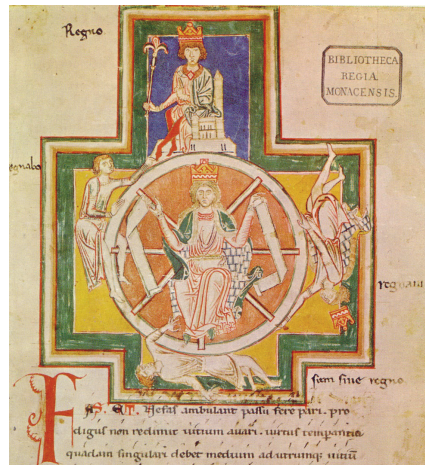 Regno
BIBLIOTHECA
REGIA
MONACENSIS.
egnabo
regnaui
sum sine regno
FAS. ET. Nefas ambulant passu fere pari. pro
digus non redimit uitium auari. uirtus temperantia
quadam singulari debet medium ad utrumq; uitiū